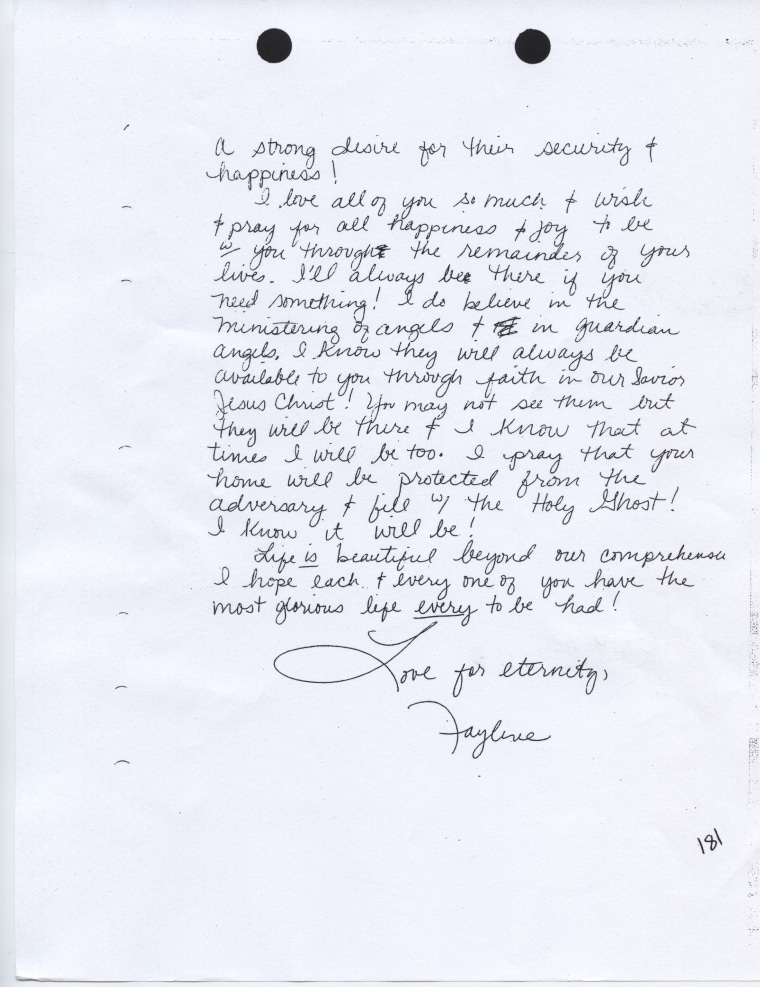 A strong desire for their security &
happiness!
I love all of you so much & wish
& pray for all happiness & joy to be
w/ you through the remainder of your
lives. I'll always be there if you
need something! I do believe in the
ministering of angels & in guardian
angels. I know they will always be
available to you through faith in our Savior
Jesus Christ! You may not see them but
they will be there & I know that at
times I will be too. I pray that your
home will be protected from the
adversary & fill w/ the Holy Ghost!
I know it will be!
Life is beautiful beyond our comprehensi
I hope each & every one of you have the
most glorious life every to be had!
Love for eternity,
Faylene
181